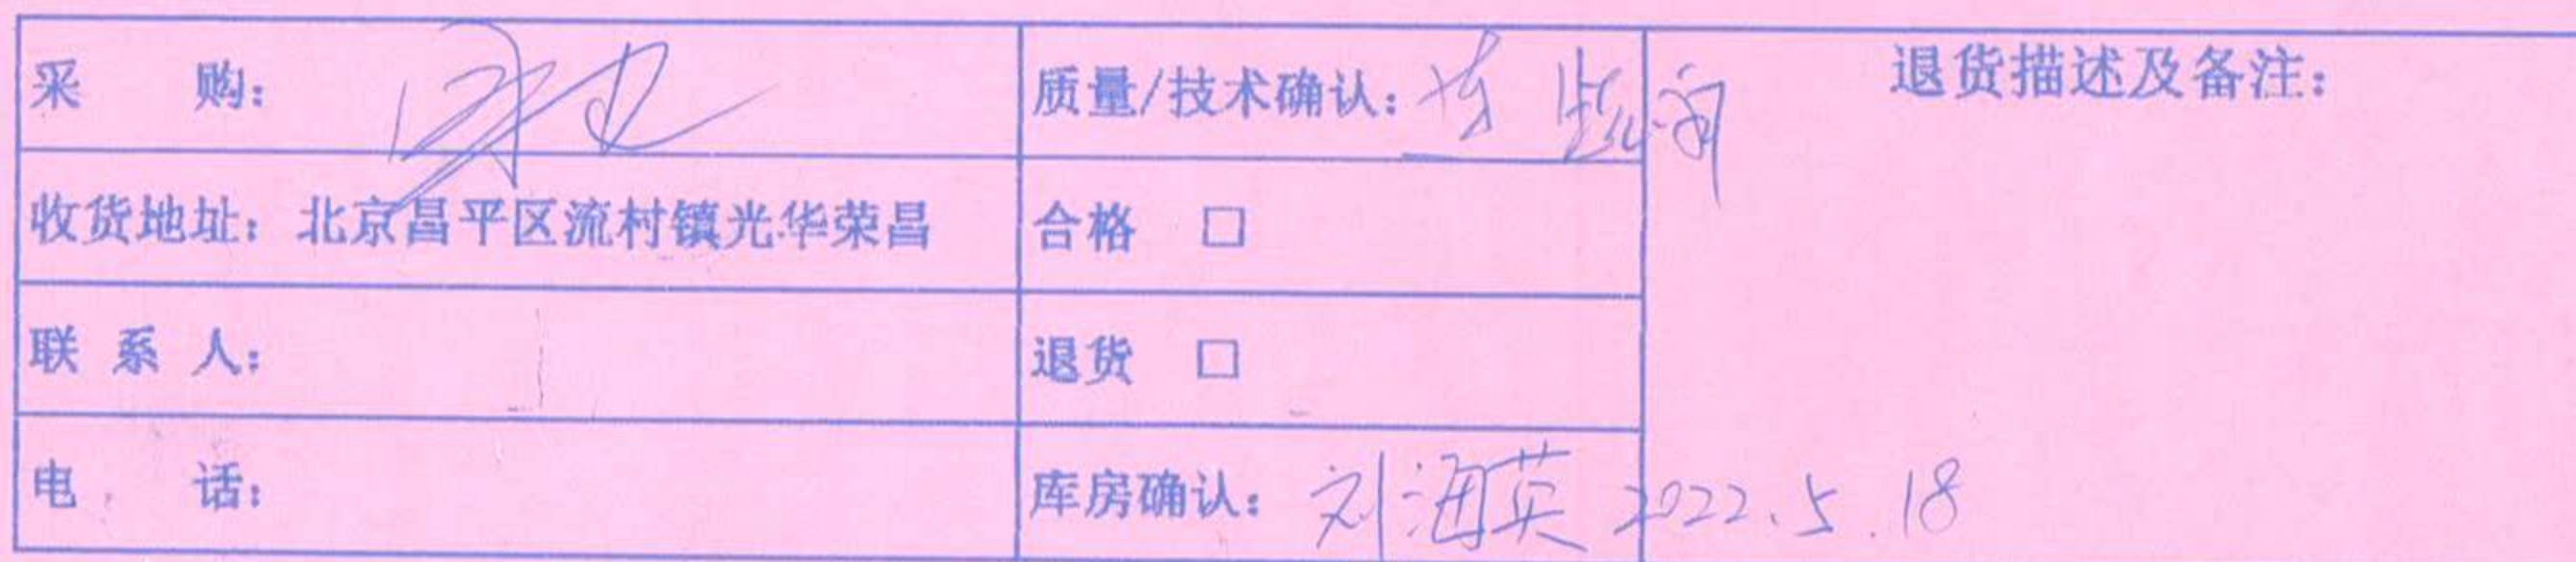 采 购：
质量/技术确认：
退货描述及备注：
收货地址：北京昌平区流村镇光华荣昌
合格 □
联 系 人：
退货 □
电 话：
库房确认：刘海英 2022.5.18